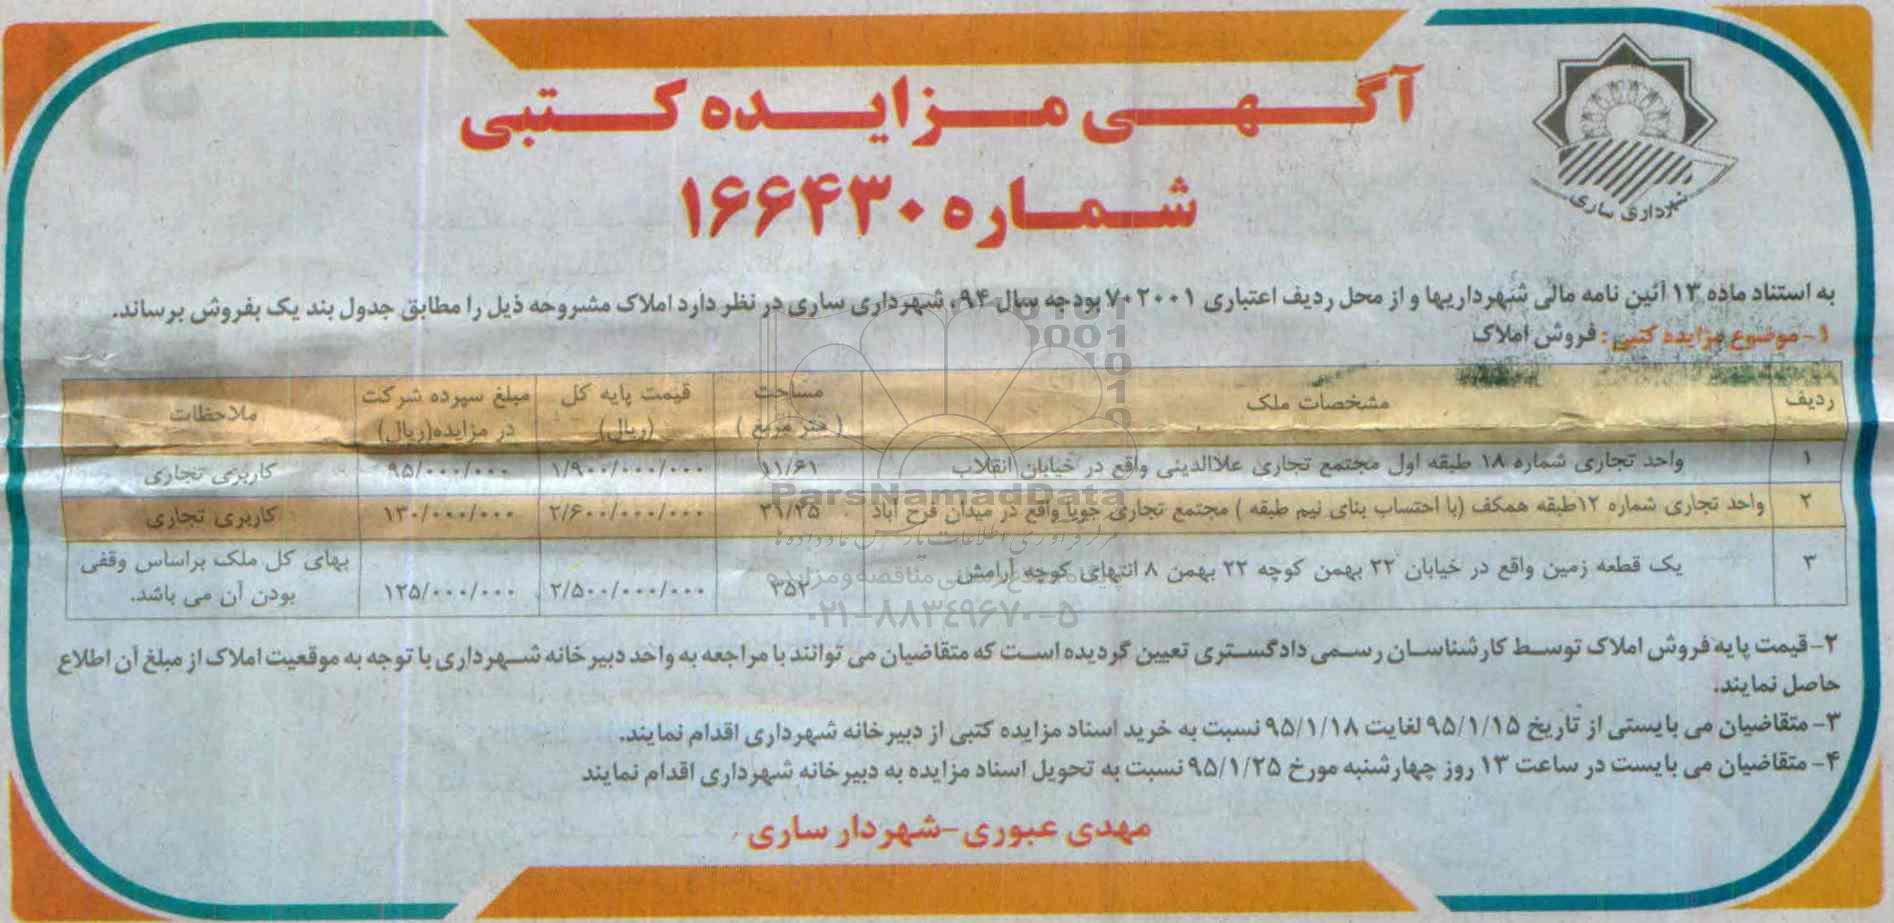 آگهی مزایده کتبی
شماره ۱۶۶۴۳۰
شهرداری ساری
به استناد ماده ۱۳ آئین نامه مالی شهرداریها و از محل ردیف اعتباری ۷۰۲۰۰۱ بودجه سال ۹۴، شهرداری ساری در نظر دارد املاک مشروحه ذیل را مطابق جدول بند یک بفروش برساند.
۱- موضوع مزایده کتبی: فروش املاک
ردیف مشخصات ملک مساحت (متر مربع) قیمت پایه کل (ریال) مبلغ سپرده شرکت در مزایده(ریال) ملاحظات
۱ واحد تجاری شماره ۱۸ طبقه اول مجتمع تجاری علاالدینی واقع در خیابان انقلاب ۱۱/۶۱ ۱/۹۰۰/۰۰۰/۰۰۰ ۹۵/۰۰۰/۰۰۰ کاربری تجاری
۲ واحد تجاری شماره ۱۲طبقه همکف (با احتساب بنای نیم طبقه ) مجتمع تجاری جویا واقع در میدان فرح آباد ۳۱/۲۵ ۲/۶۰۰/۰۰۰/۰۰۰ ۱۳۰/۰۰۰/۰۰۰ کاربری تجاری
۳ یک قطعه زمین واقع در خیابان ۲۲ بهمن کوچه ۲۲ بهمن ۸ انتهای کوچه آرامش ۳۵۲ ۲/۵۰۰/۰۰۰/۰۰۰ ۱۲۵/۰۰۰/۰۰۰ بهای کل ملک براساس وقفی بودن آن می باشد.
ParsNamadData
۰۲۱-۸۸۳۴۹۶۷۰-۵
۲-قیمت پایه فروش املاک توسط کارشناسان رسمی دادگستری تعیین گردیده است که متقاضیان می توانند با مراجعه به واحد دبیرخانه شهرداری با توجه به موقعیت املاک از مبلغ آن اطلاع
حاصل نمایند.
۳- متقاضیان می بایستی از تاریخ ۹۵/۱/۱۵ لغایت ۹۵/۱/۱۸ نسبت به خرید اسناد مزایده کتبی از دبیرخانه شهرداری اقدام نمایند.
۴- متقاضیان می بایست در ساعت ۱۳ روز چهارشنبه مورخ ۹۵/۱/۲۵ نسبت به تحویل اسناد مزایده به دبیرخانه شهرداری اقدام نمایند
مهدی عبوری-شهردار ساری